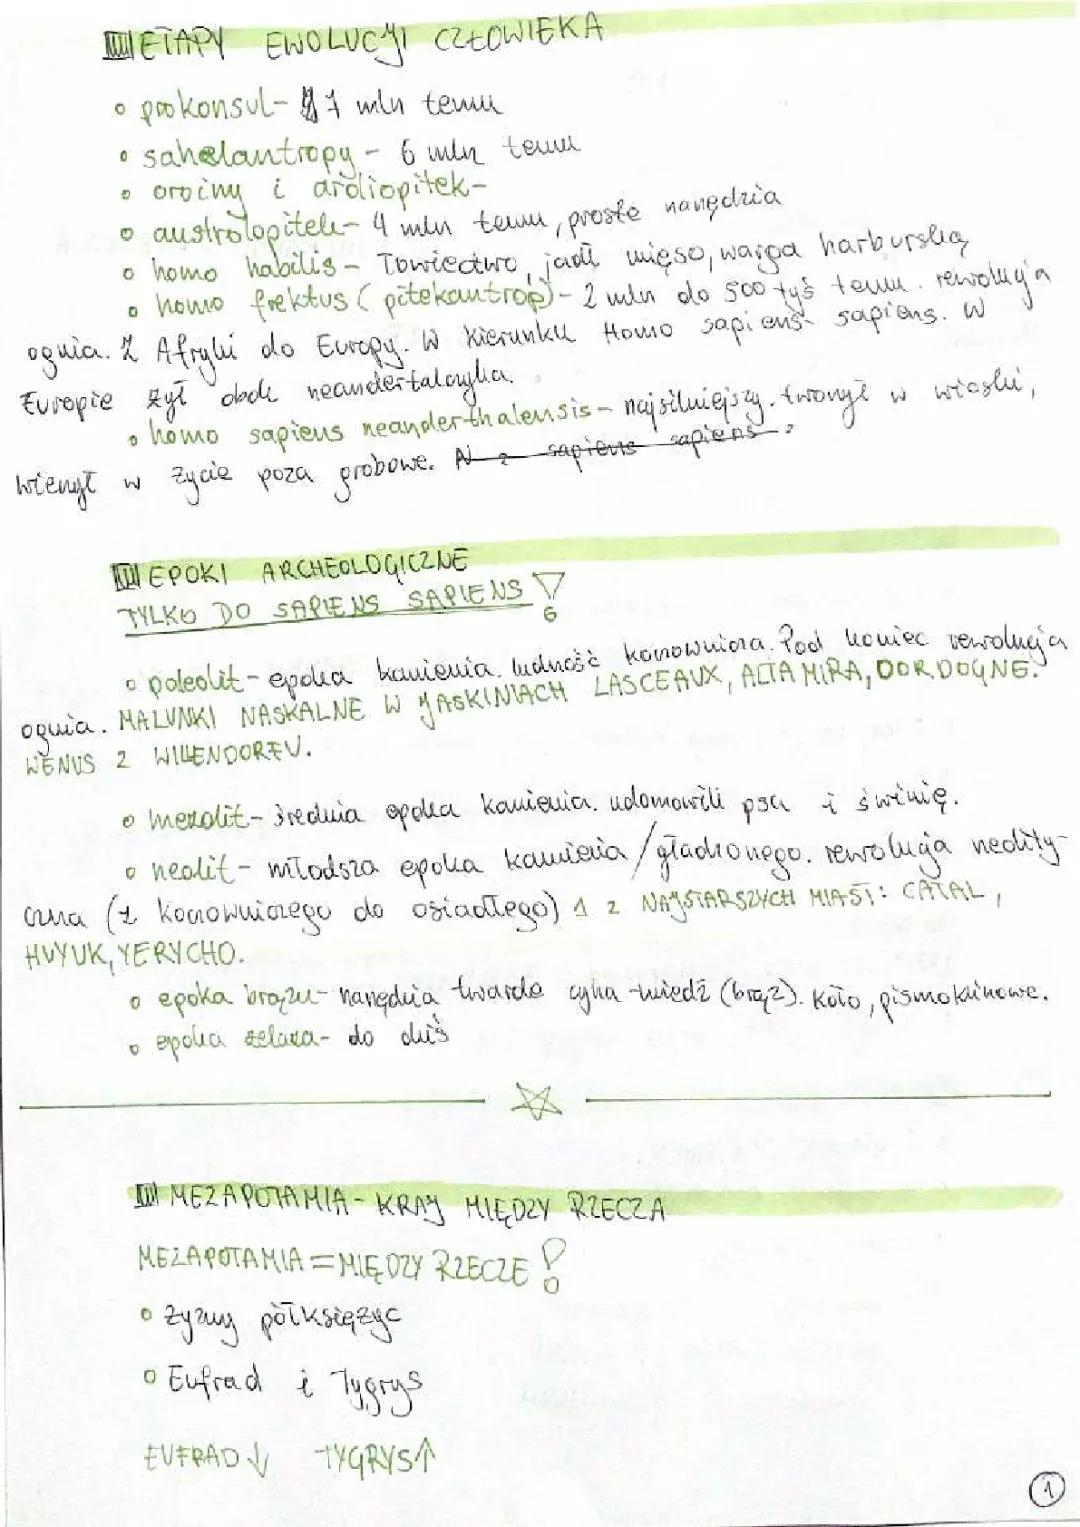 ETAPY EWOLUCJI CZŁOWIEKA
prokonsul- 7 mln temu
sahelantropy - 6 mln temu
ororiny i ardiopitek-
australopitek- 4 mln temu, proste narzędzia
homo habilis - łowiectwo, jadł mięso, warga harburską
homo erektus (pitekantrop)- 2 mln do 500 tyś temu. rewolucja
ognia. Z Afryki do Europy. W kierunku Homo sapiens sapiens. W
Europie żył obok neandertalczyka.
homo sapiens neanderthalensis- najsilniejszy. tworzył wioski,
wierzył w życie poza grobowe. sapiens sapiens
EPOKI ARCHEOLOGICZNE
TYLKO DO SAPIENS SAPIENS
paleolit- epoka kamienia. ludność koczownicza. Pod koniec rewolucja
ognia. MALUNKI NASKALNE W JASKINIACH LASCEAUX, ALTAMIRA, DORDOGNE.
WENUS Z WILLENDORFU.
mezolit- średnia epoka kamienia. udomowili psa i świnię.
neolit - młodsza epoka kamienia/gładzonego. rewolucja neolity-
czna (z koczowniczego do osiadłego) 1 z NAJSTARSZYCH MIAST: CATAL,
HUYUK, JERYCHO.
epoka brązu- narzędzia twarde cyna + miedź (brąz). koło, pismo klinowe.
epoka żelaza- do dziś
MEZAPOTAMIA - KRAJ MIĘDZY RZECZA
MEZAPOTAMIA = MIĘDZY RZECZE!
żyzny półksiężyc
Eufrad i Tygrys
EUFRAD ↓ TYGRYS ↑
1